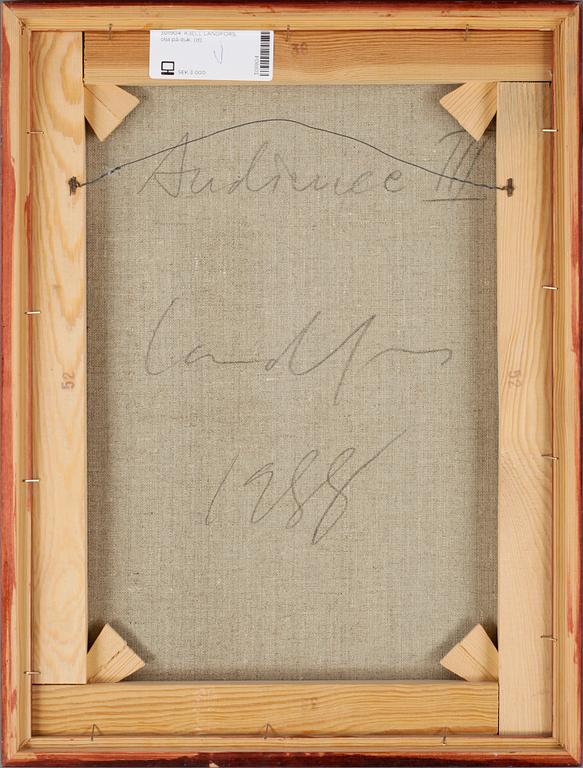 KJELL LANDFORS,
olja på duk.
SEK 3 000
38
Audience III
Landfors
52
52
1988